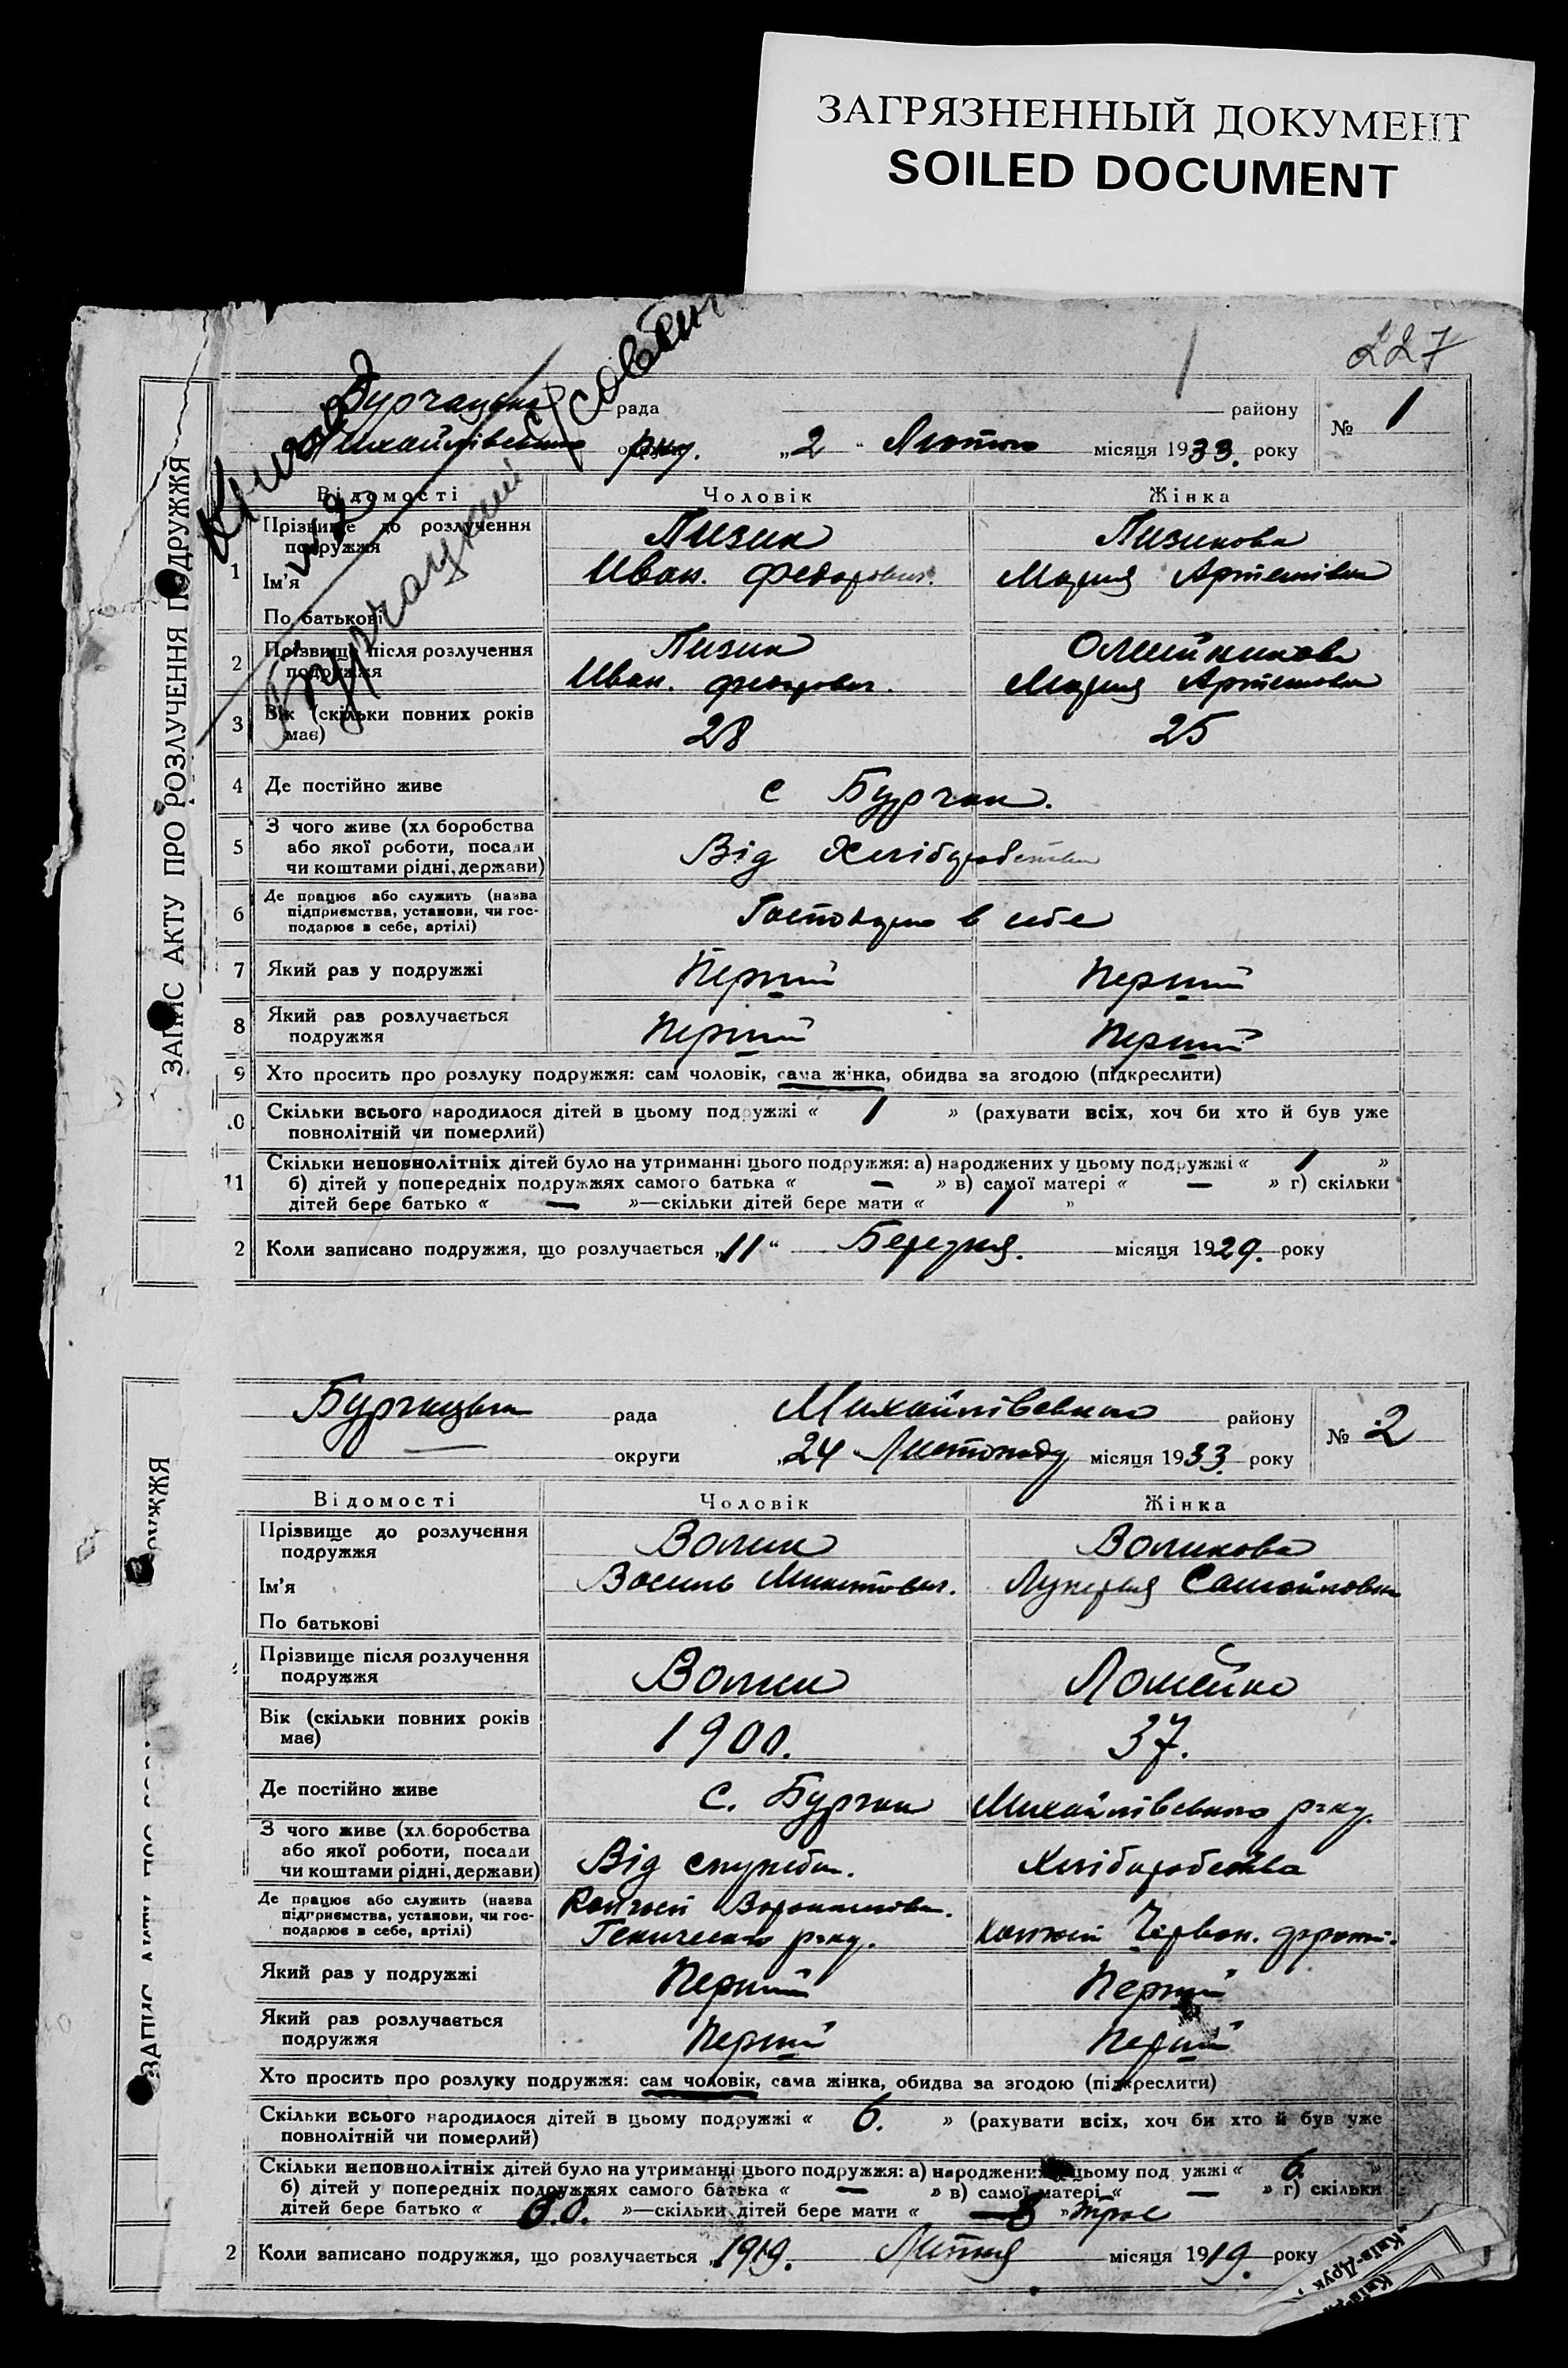 ЗАГРЯЗНЕННЫЙ ДОКУМЕНТ
SOILED DOCUMENT
227
Книга
№ 2
Бурчацький с/совет
ЗАПИС АКТУ ПРО РОЗЛУЧЕННЯ ПОДРУЖЖЯ
Бурчацька рада району № 1
Михайлівського рну. „2“ Лютого місяця 1933. року
Відомості Чоловік Жінка
1 Прізвище до розлучення подружжя Лизин Лизинова
Ім'я Иван. Федорович. Мария Артемівна
По батькові
2 Прізвище після розлучення подружжя Лизин Олейникова
Иван. Федорович. Мария Артемовна
3 Вік (скільки повних років має) 28 25
4 Де постійно живе с Бурчак.
5 З чого живе (хл боробства або якої роботи, посади чи коштами рідні, держави) Від Хліборобства
6 Де працює або служить (назва підприємства, установи, чи господарює в себе, артілі) в себе
7 Який раз у подружжі Перший Перший
8 Який раз розлучається подружжя Перший Перший
9 Хто просить про розлуку подружжя: сам чоловік, сама жінка, обидва за згодою (підкреслити)
10 Скільки всього народилося дітей в цьому подружжі « 1 » (рахувати всіх, хоч би хто й був уже
повнолітній чи померлий)
11 Скільки неповнолітніх дітей було на утриманні цього подружжя: а) народжених у цьому подружжі « 1 »
б) дітей у попередніх подружжях самого батька « — » в) самої матері « — » г) скільки
дітей бере батько « — »—скільки дітей бере мати « 1 »
2 Коли записано подружжя, що розлучається „11“ Березня. місяця 1929. року
Бурчацька рада Михайлівського району № 2
округи „24 Листопаду місяця 1933. року
Відомості Чоловік Жінка
Прізвище до розлучення подружжя Волик Воликова
Ім'я Василь Микитович. Лукерия Самойловна
По батькові
Прізвище після розлучення подружжя Волик Ломейко
Вік (скільки повних років має) 1900. 37.
Де постійно живе С. Бурчак Михайлівського рну.
З чого живе (хл.боробства або якої роботи, посади чи коштами рідні, держави) Від служби. Хліборобства
Де працює або служить (назва підприємства, установи, чи господарює в себе, артілі) Генического рну. Червон.
Який раз у подружжі Перший Перший
Який раз розлучається подружжя Перший Перший
Хто просить про розлуку подружжя: сам чоловік, сама жінка, обидва за згодою (підкреслити)
Скільки всього народилося дітей в цьому подружжі « 6. » (рахувати всіх, хоч би хто й був уже
повнолітній чи померлий)
Скільки неповнолітніх дітей було на утриманні цього подружжя: а) народжених у цьому подружжі « 6 »
б) дітей у попередніх подружжях самого батька « — » в) самої матері « — » г) скільки
дітей бере батько « »—скільки дітей бере мати « » трое
2 Коли записано подружжя, що розлучається „1919. Липня місяця 1919. року
„Київ-Друк